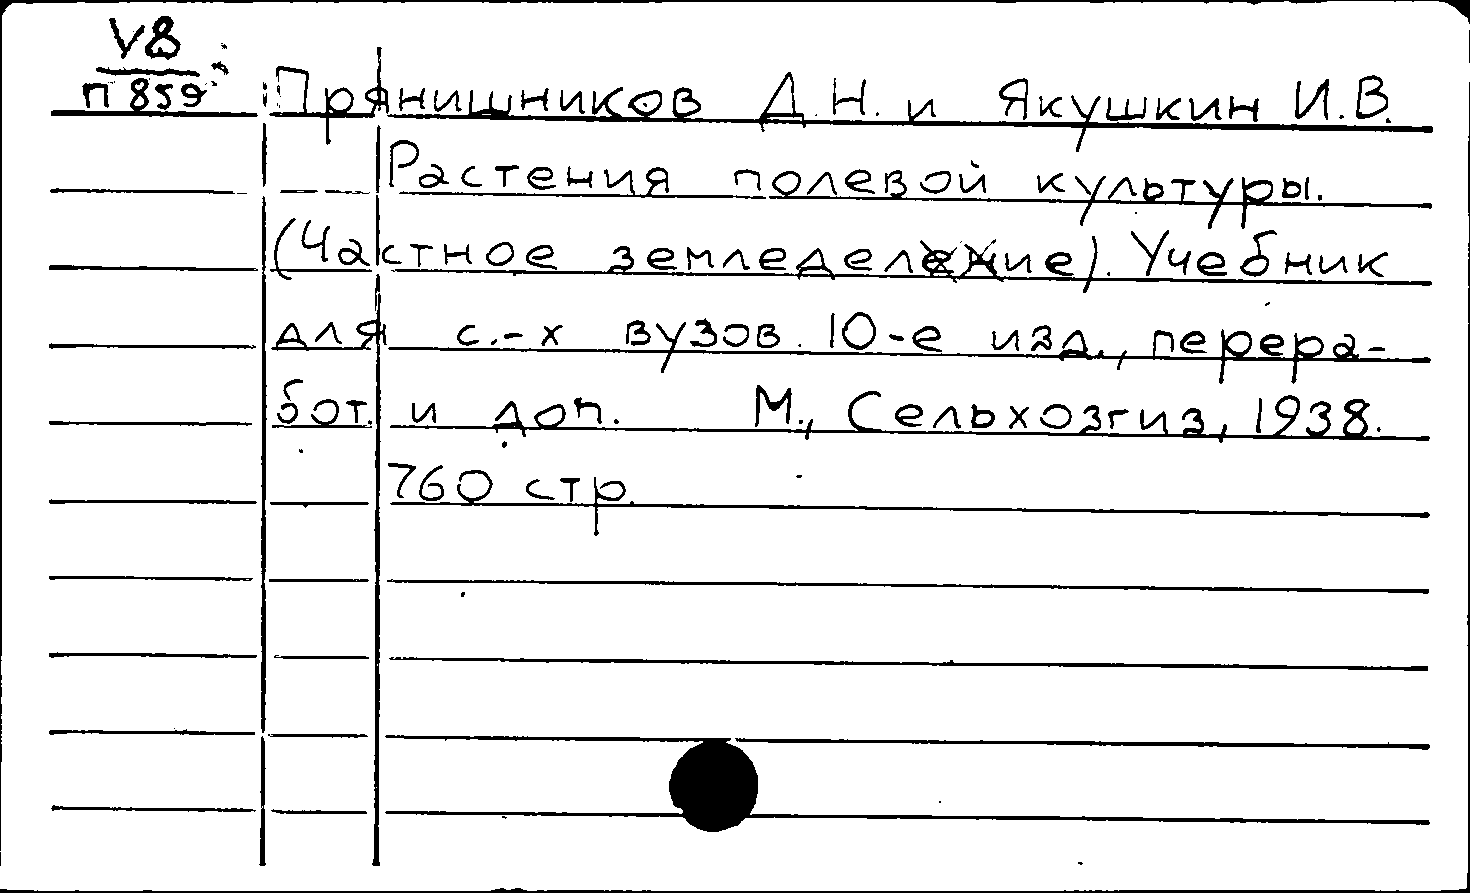 V8
П 859
Прянишников Д.Н. и Якушкин И.В.
Растения полевой культуры.
(Частное земледелие). Учебник
для с.-х вузов. 10-е изд., перера-
бот. и доп. М., Сельхозгиз, 1938.
760 стр.